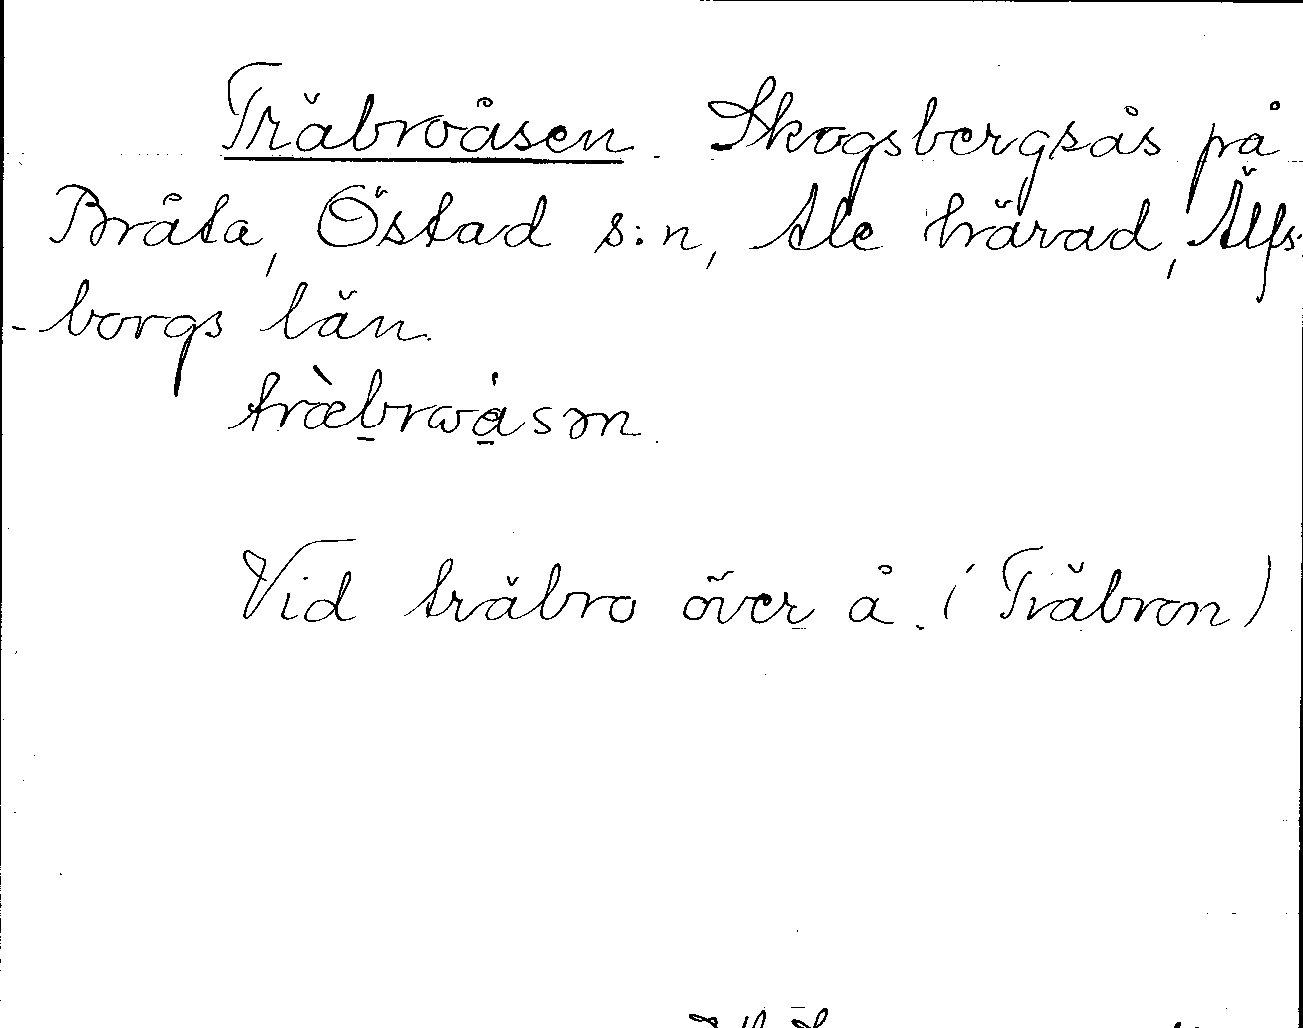 Träbroåsen. Skogsbergsås på
Bråta, Östad s:n, Ale härad, Älfs-
-borgs län.
træ̀b̲rωå̲sən.
Vid träbro över å. (Träbron)